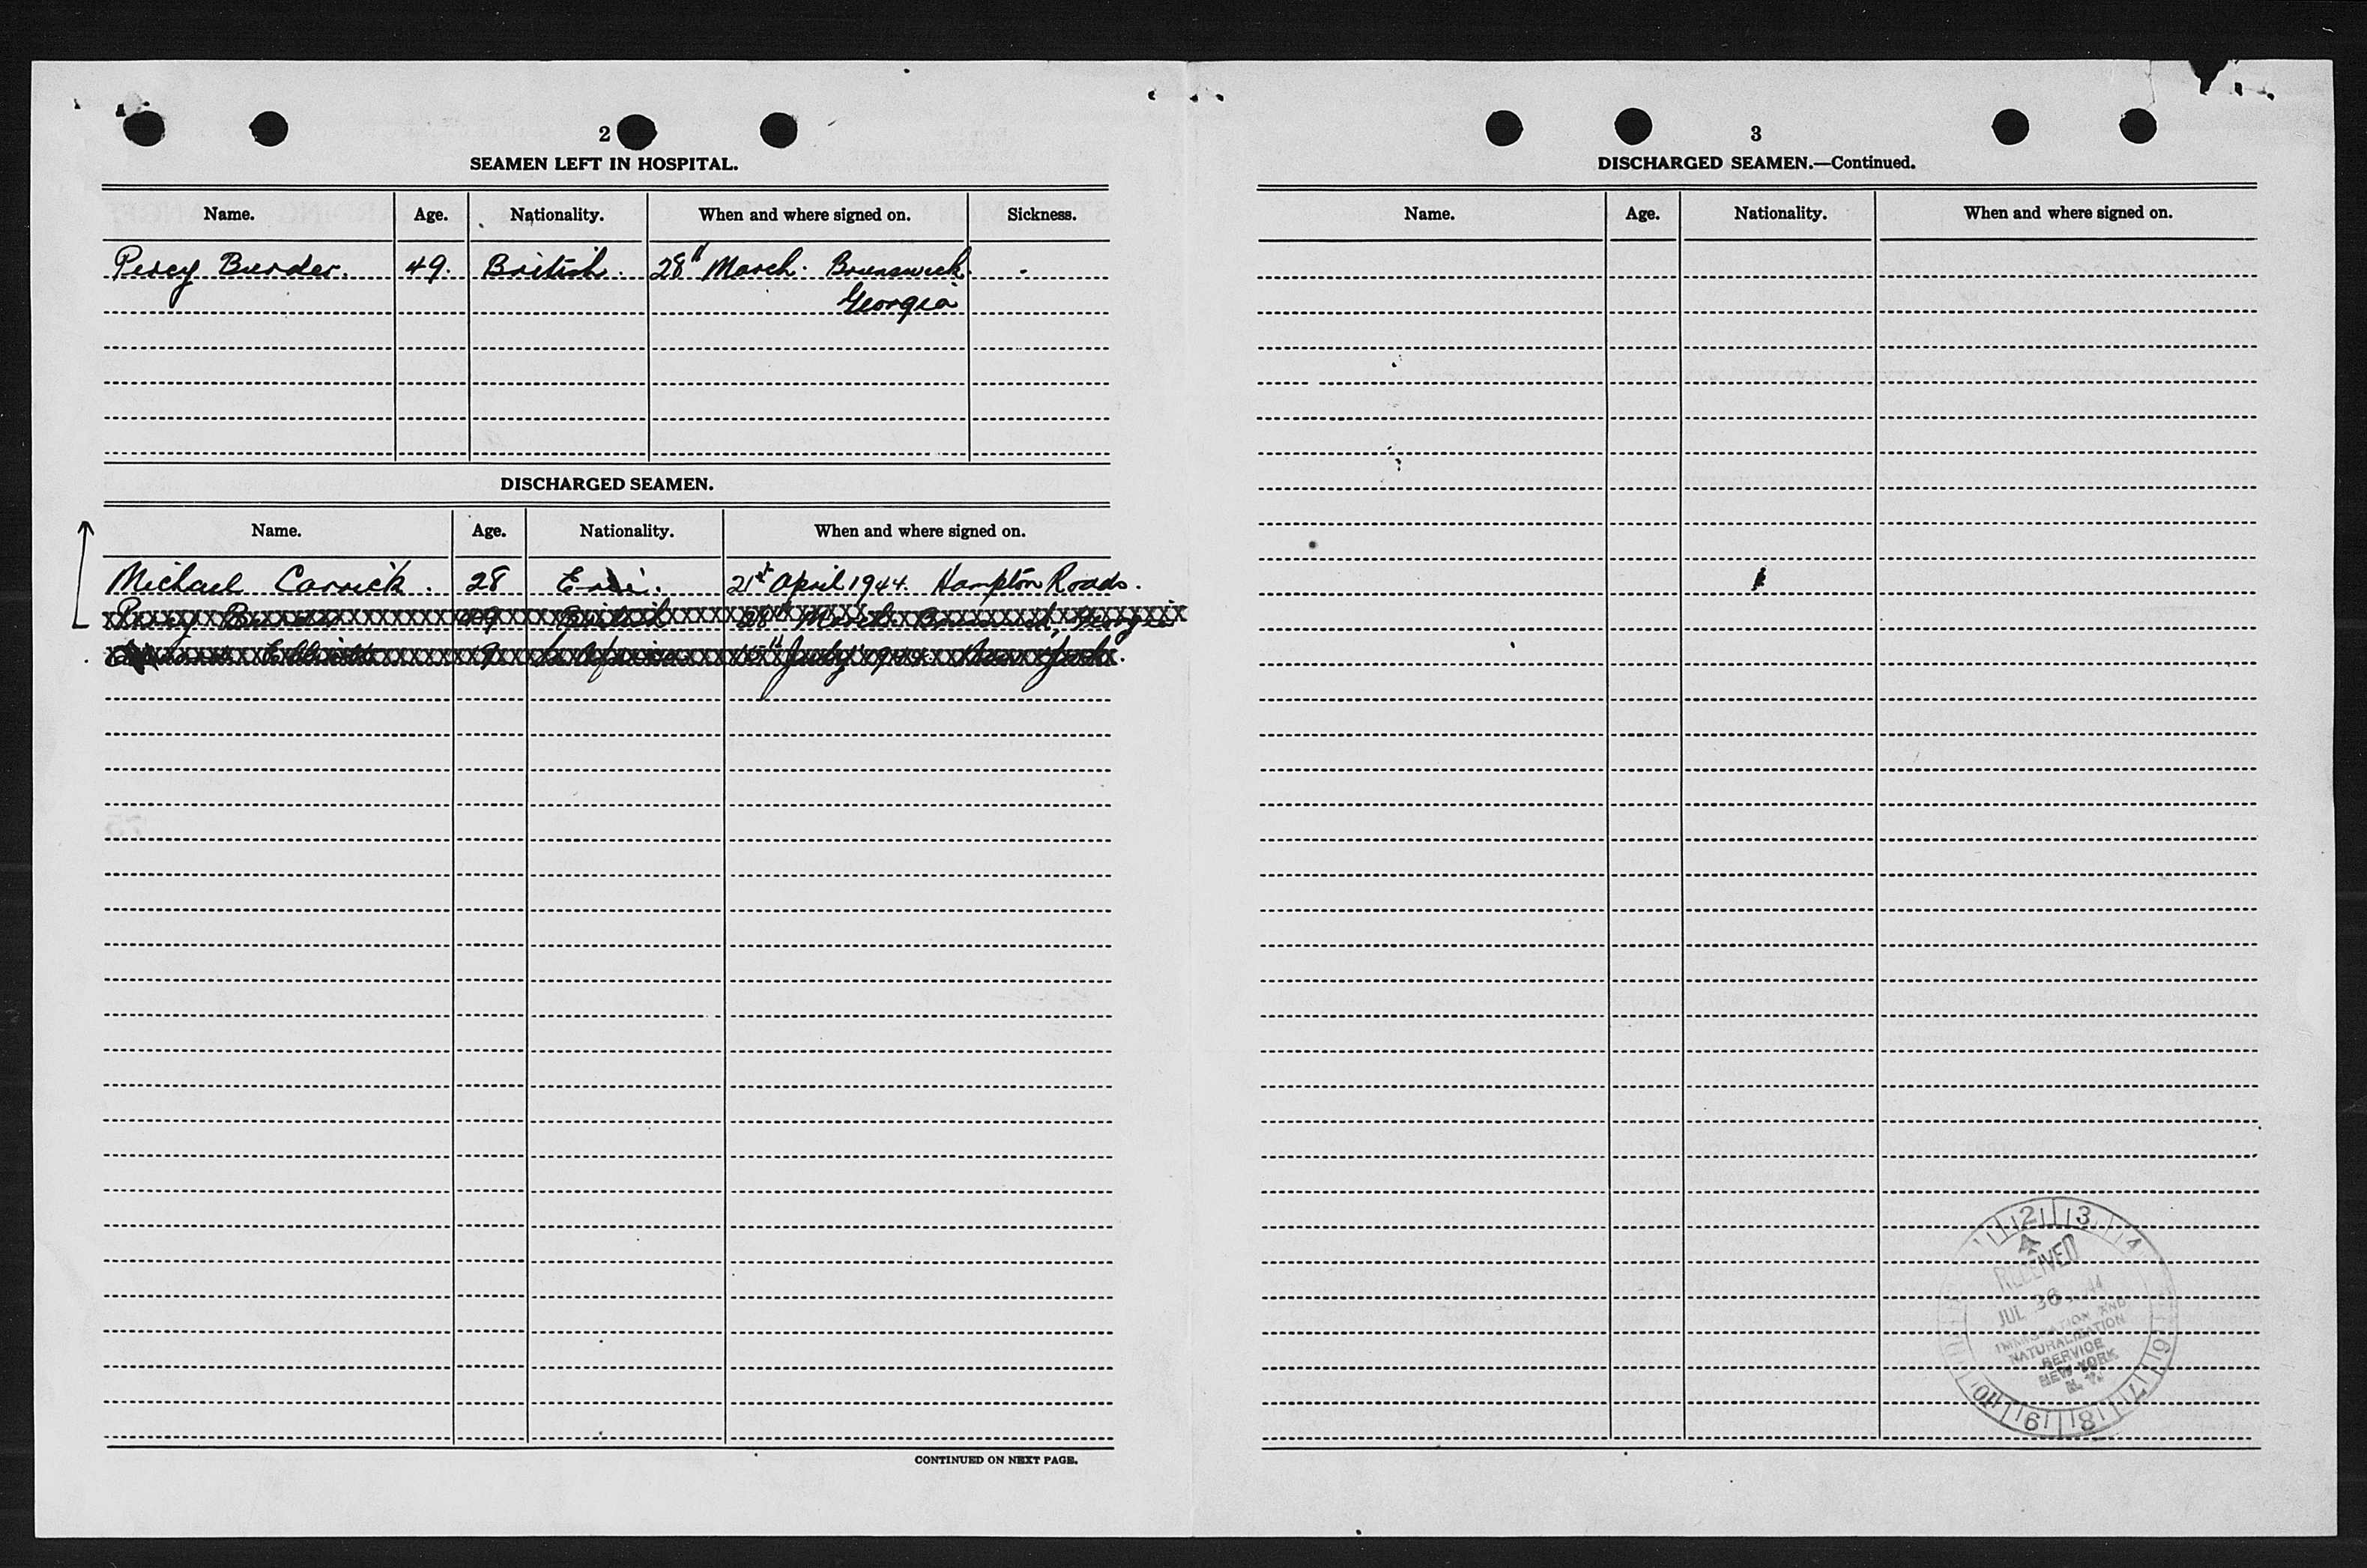 2
SEAMEN LEFT IN HOSPITAL.
Name. Age. Nationality. When and where signed on. Sickness.
Percy Burder. 49. British. 28th March. Brunswick.
Georgia
DISCHARGED SEAMEN.
Name. Age. Nationality. When and where signed on.
Michael Carrick. 28 Eire. 21st April 1944. Hampton Roads.
Percy Burder 49 British 28th March Brunswick, Georgia
Elliott 9 S. Africa 15th July 1944 New York.
CONTINUED ON NEXT PAGE.
3
DISCHARGED SEAMEN.—Continued.
Name. Age. Nationality. When and where signed on.
2 3 4
RECEIVED
JUL 26
IMMIGRATION AND
NATURALIZATION
SERVICE
NEW YORK
N. Y.
6 7 8 9 10